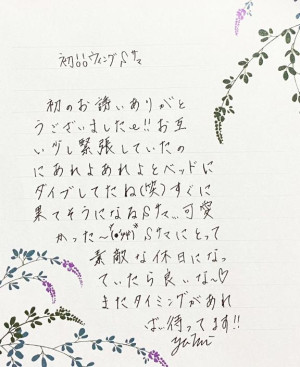 初品ウィングSサマ
初のお誘いありがと
うございましたe!!お互
い少し緊張していたの
にあれよあれよとベッドに
ダイブしてたね(笑)すぐに
果てそうになるSサマ...可愛
かった〜(*•ᴗ•*)Sサマにとって
素敵な休日になっ
ていたら良いな〜♡
またタイミングがあれ
ばぜひ待ってます!!